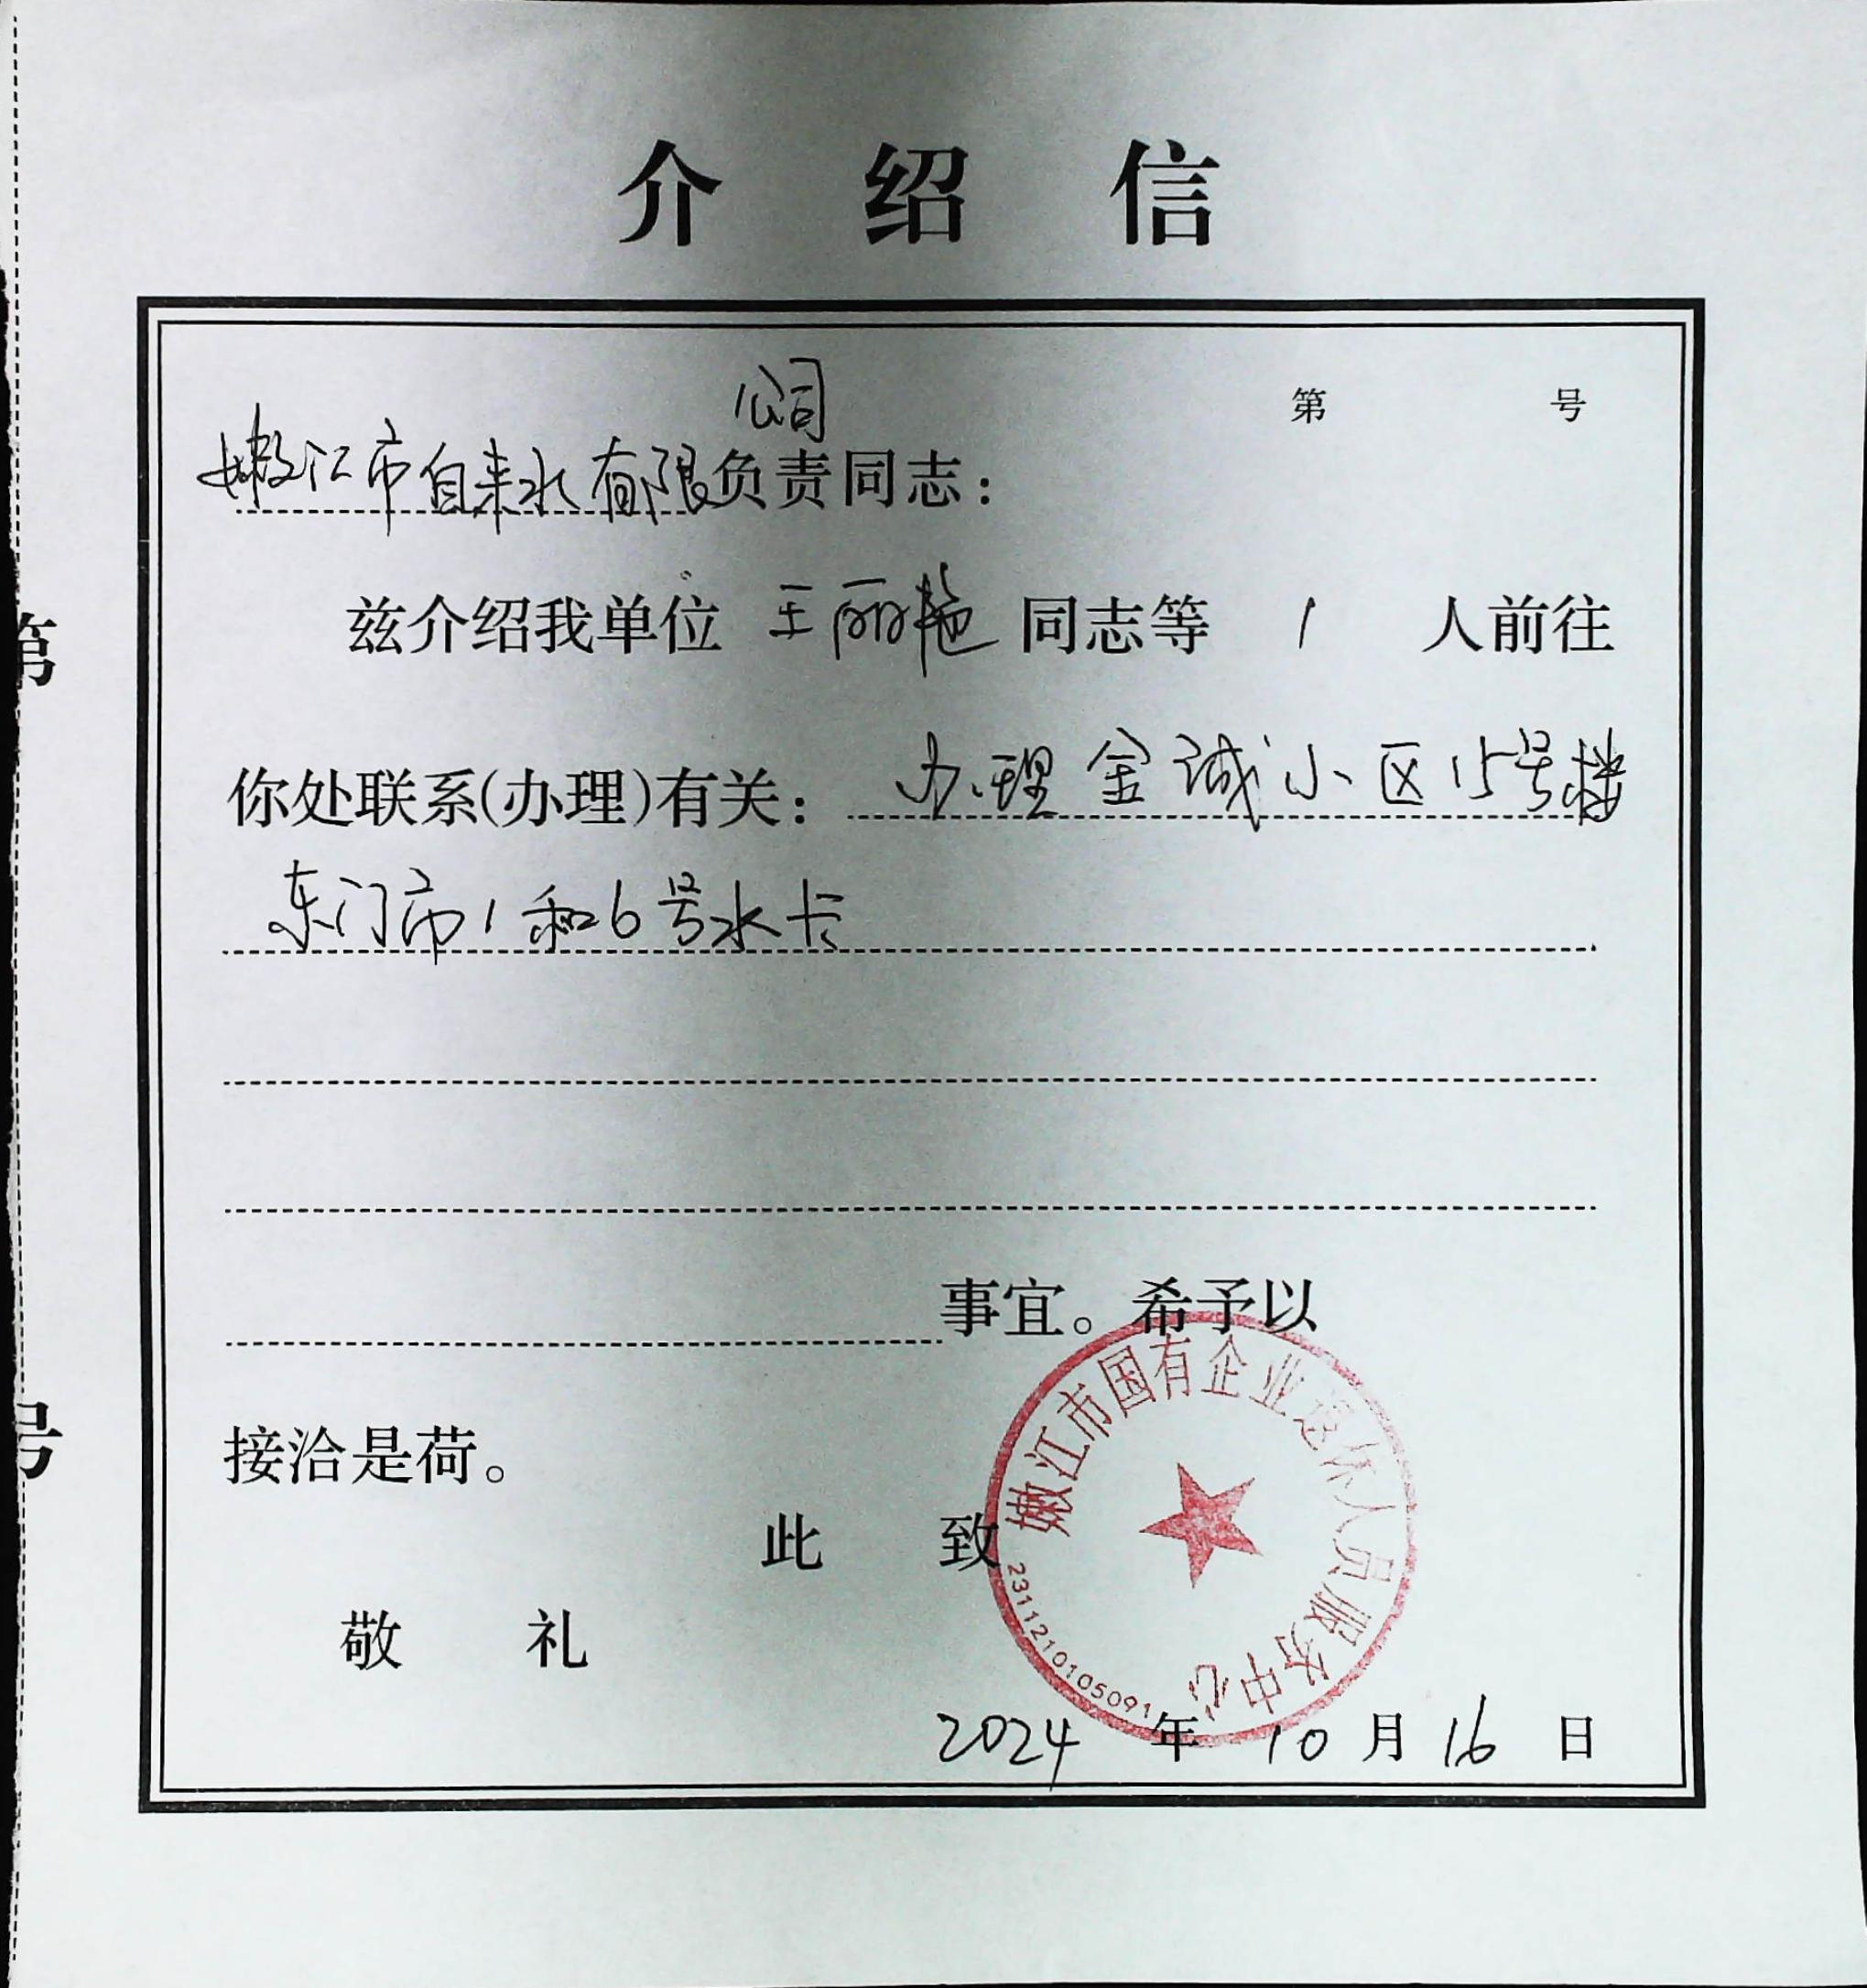 介绍信
第 号
公司
嫩江市自来水有限负责同志：
兹介绍我单位 王丽艳 同志等 1 人前往
你处联系(办理)有关：办理金诚小区15号楼
东门市1和6号水卡
事宜。希予以
接洽是荷。
此 致
敬 礼
嫩江市国有企业退休人员服务中心
2311210105091
2024 年 10 月 16 日
第
号